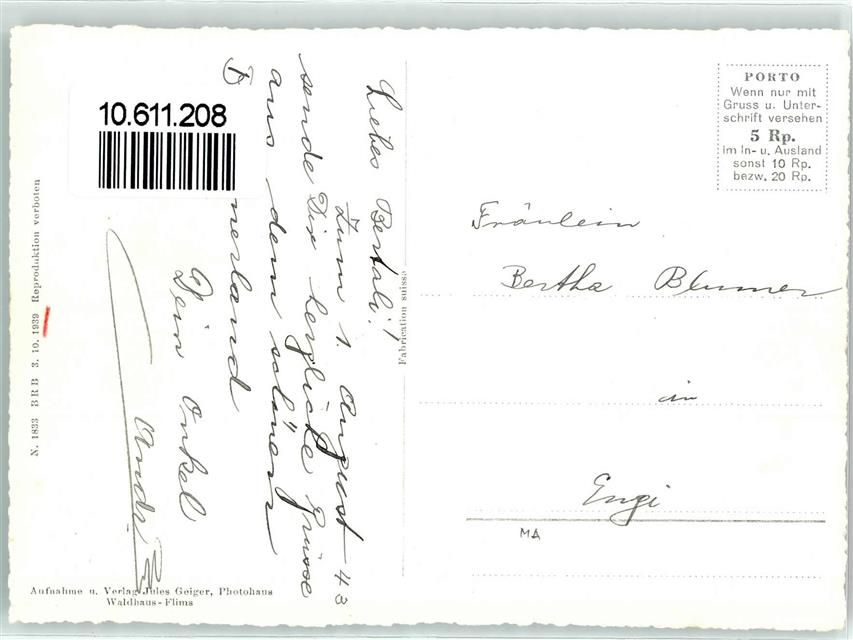 10.611.208
Liebes Bertali!
Zum 1. August 43
sende Dir herzliche Grüsse
aus dem schönen
nerland
Dein Onkel
Andr
Fabrication suisse
N. 1833 BRB 3. 10. 1939 Reproduktion verboten
Aufnahme u. Verlag Jules Geiger, Photohaus
Waldhaus-Flims
PORTO
Wenn nur mit
Gruss u. Unter-
schrift versehen
5 Rp.
Im In- u. Ausland
sonst 10 Rp.
bezw. 20 Rp.
Fräulein
Bertha Blumer
in
Engi
MA